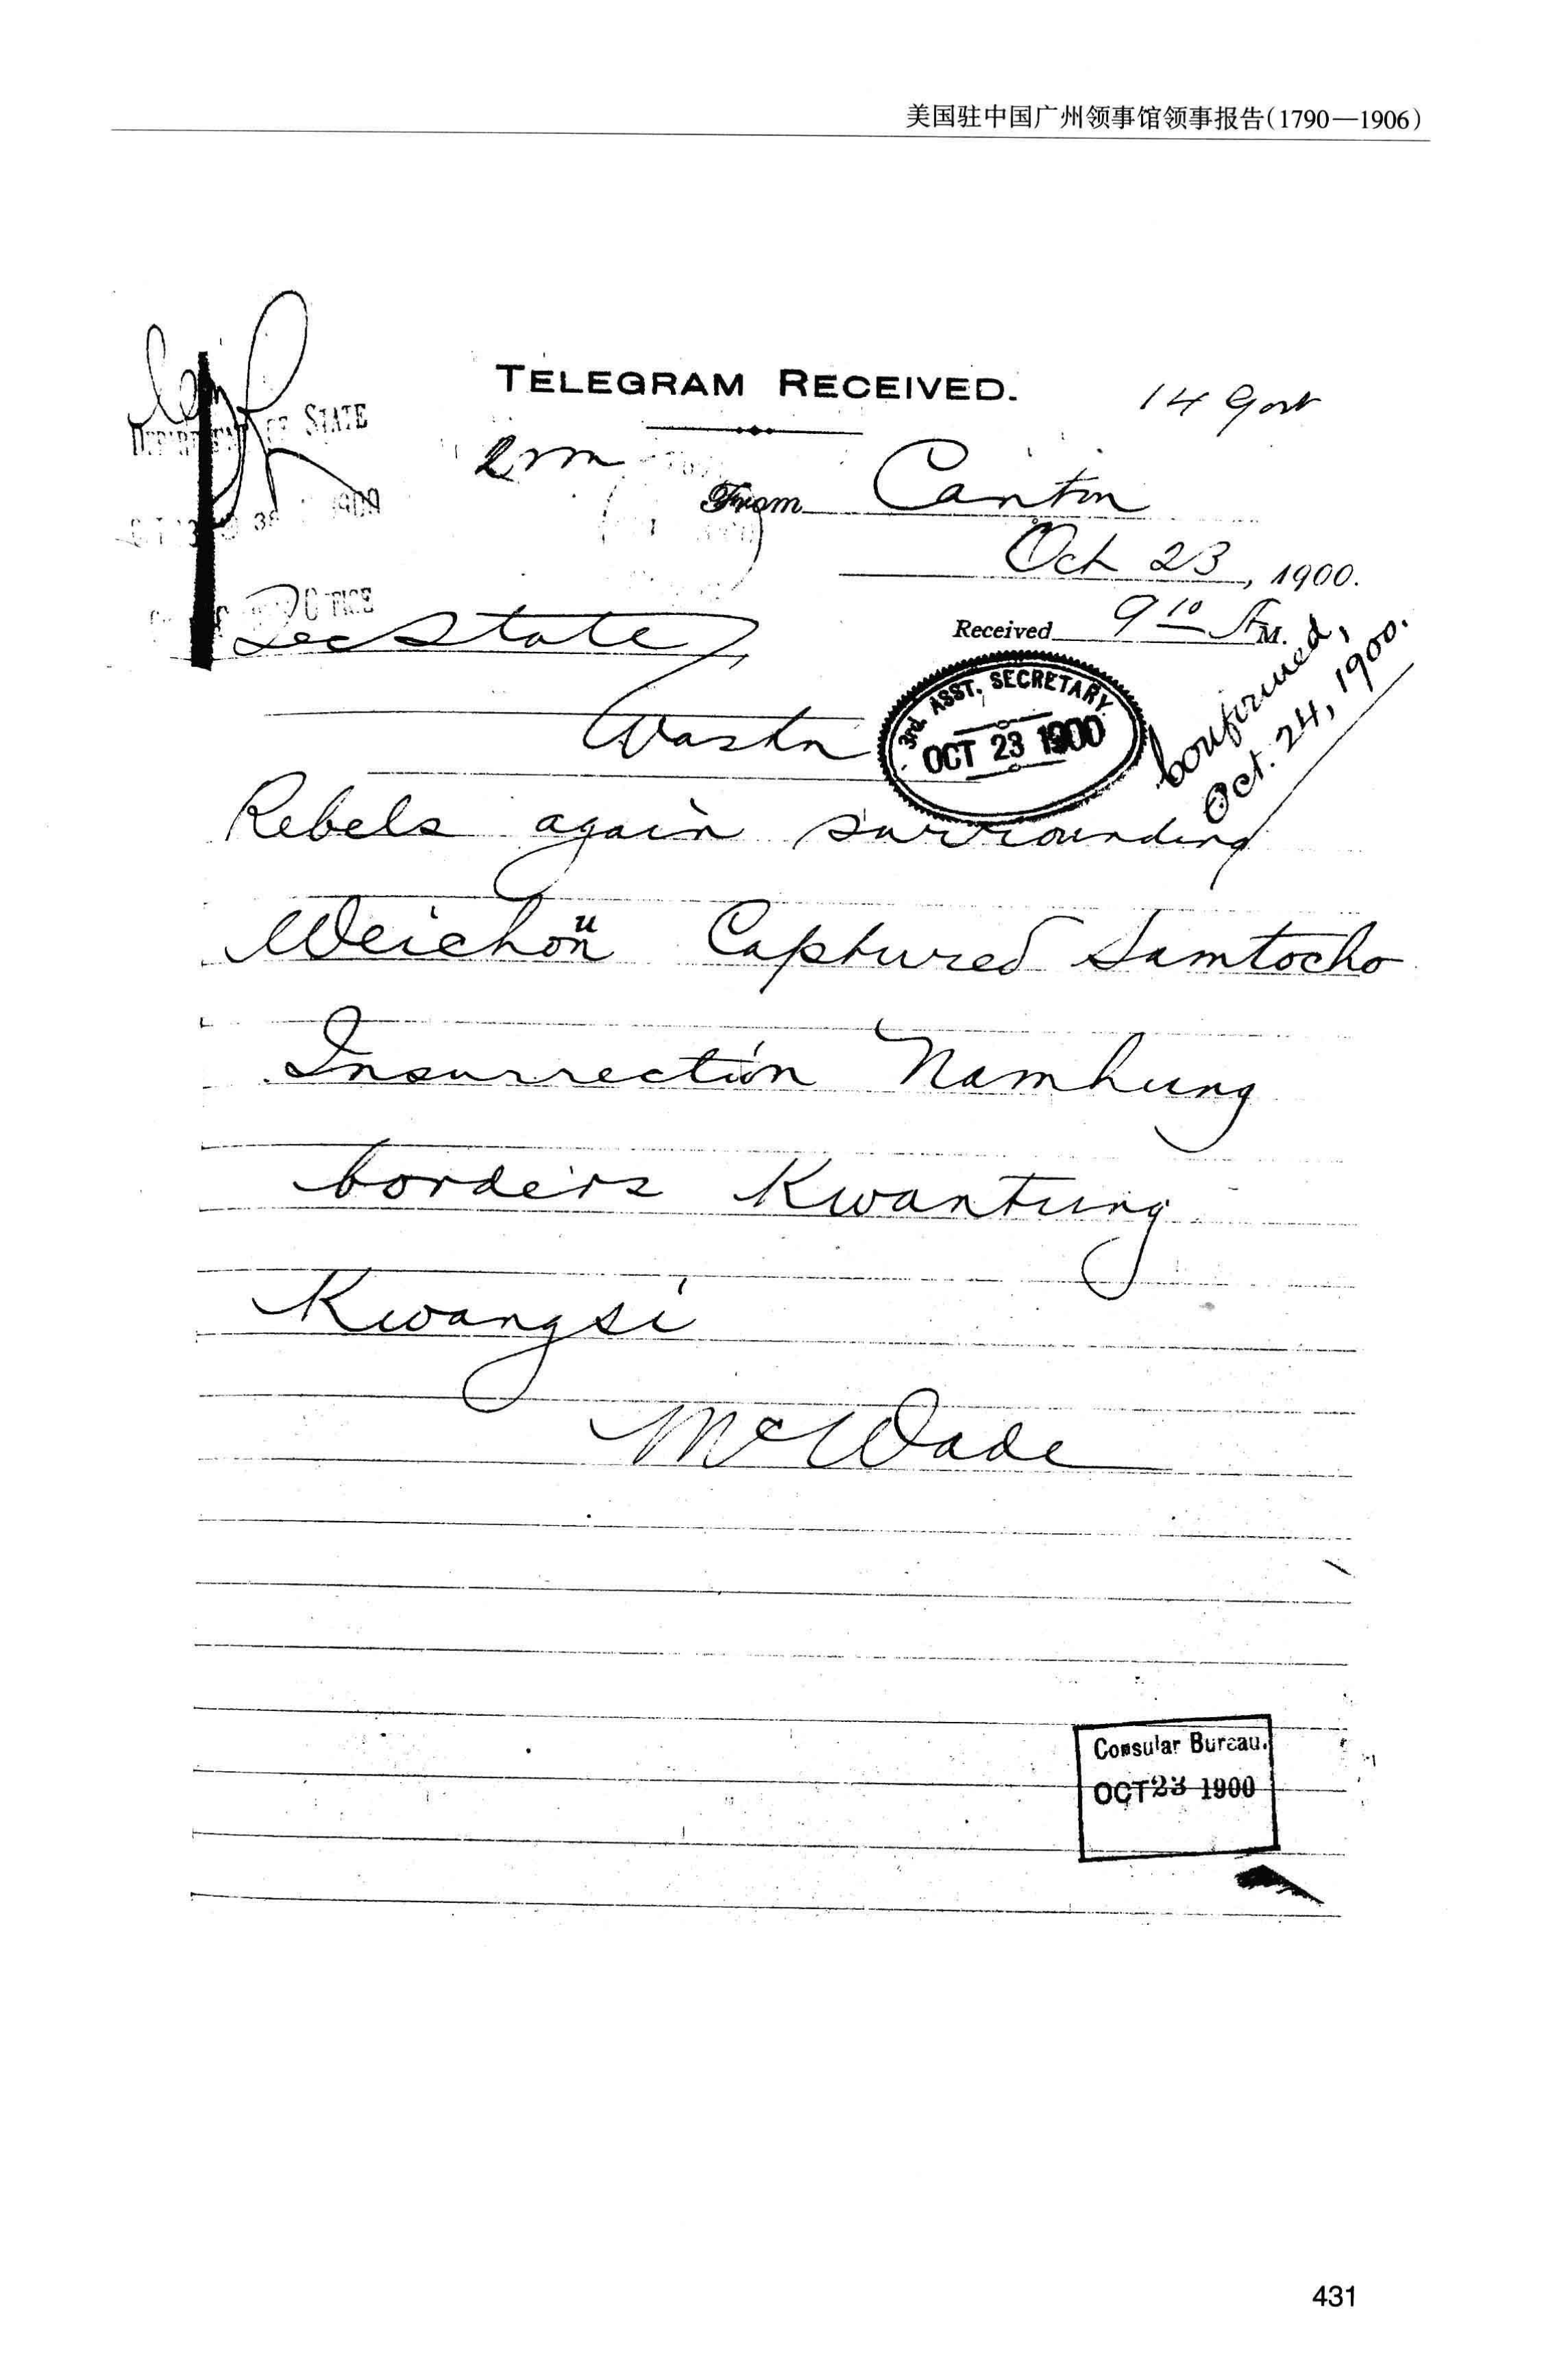 美国驻中国广州领事馆领事报告(1790—1906)
TELEGRAM RECEIVED.
14 Govt
DEPARTMENT OF STATE
From Canton
Oct 23, 1900.
Received 9 10 A M.
Sec State
Washn
3rd ASST. SECRETARY
OCT 23 1900
Confirmed,
Oct. 24, 1900.
Rebels again surrounding
Weichou Captured Samtocho
Insurrection Namhung
borders Kwantung
Kwangsi
McWade
Consular Bureau.
OCT 23 1900
431